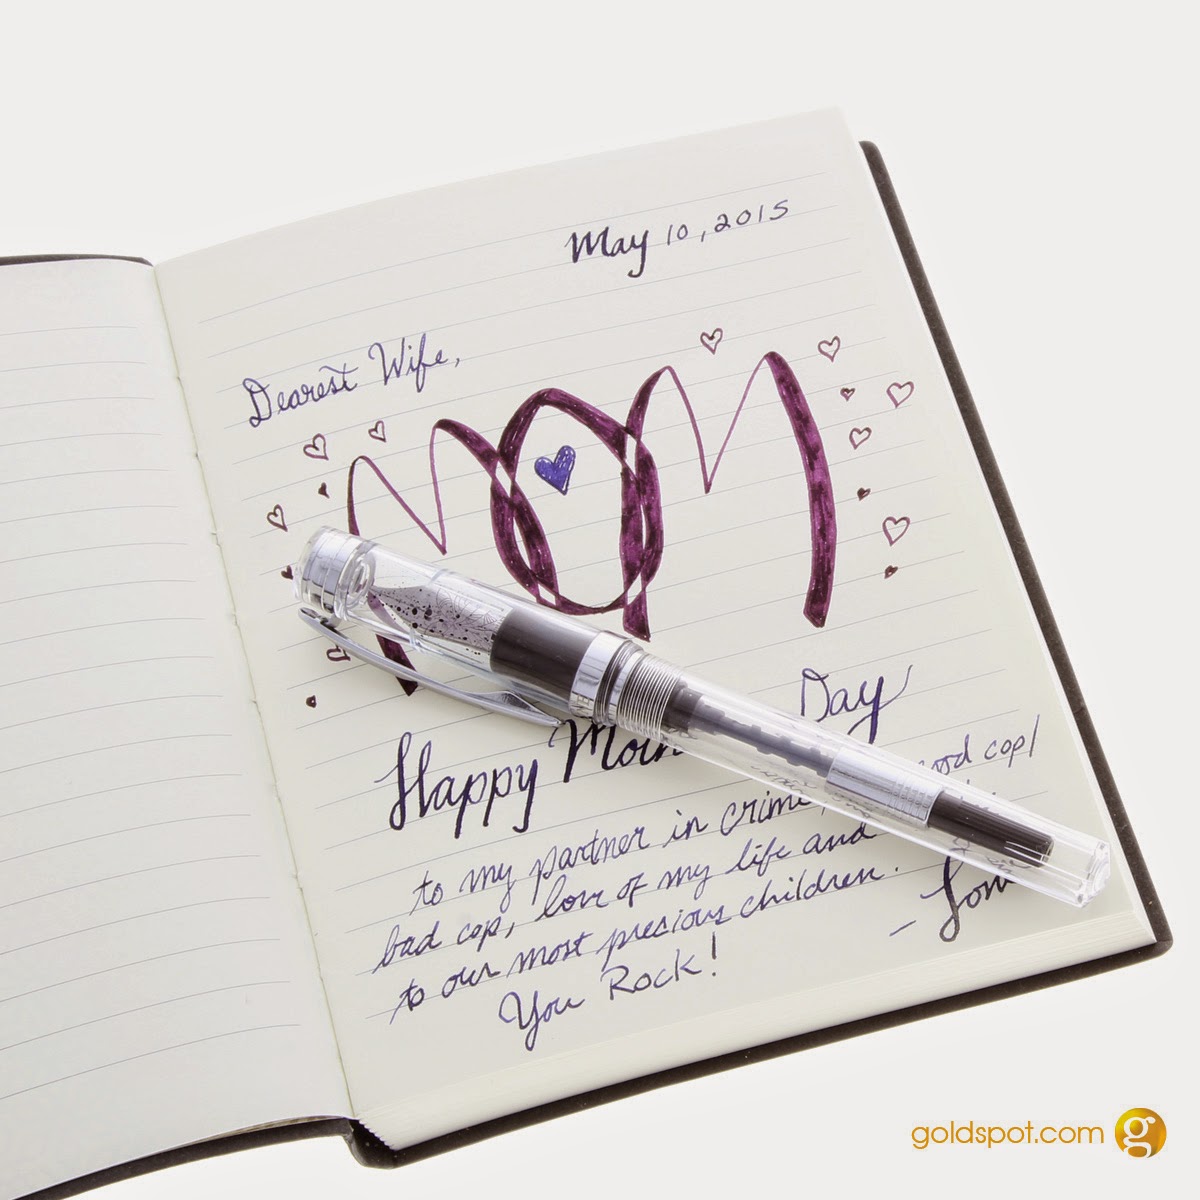 May 10, 2015
Dearest Wife,
MOM
Happy Day
to my partner in crime, cop/
bad cop, love of my life and
to our most precious children.
You Rock!
goldspot.com g